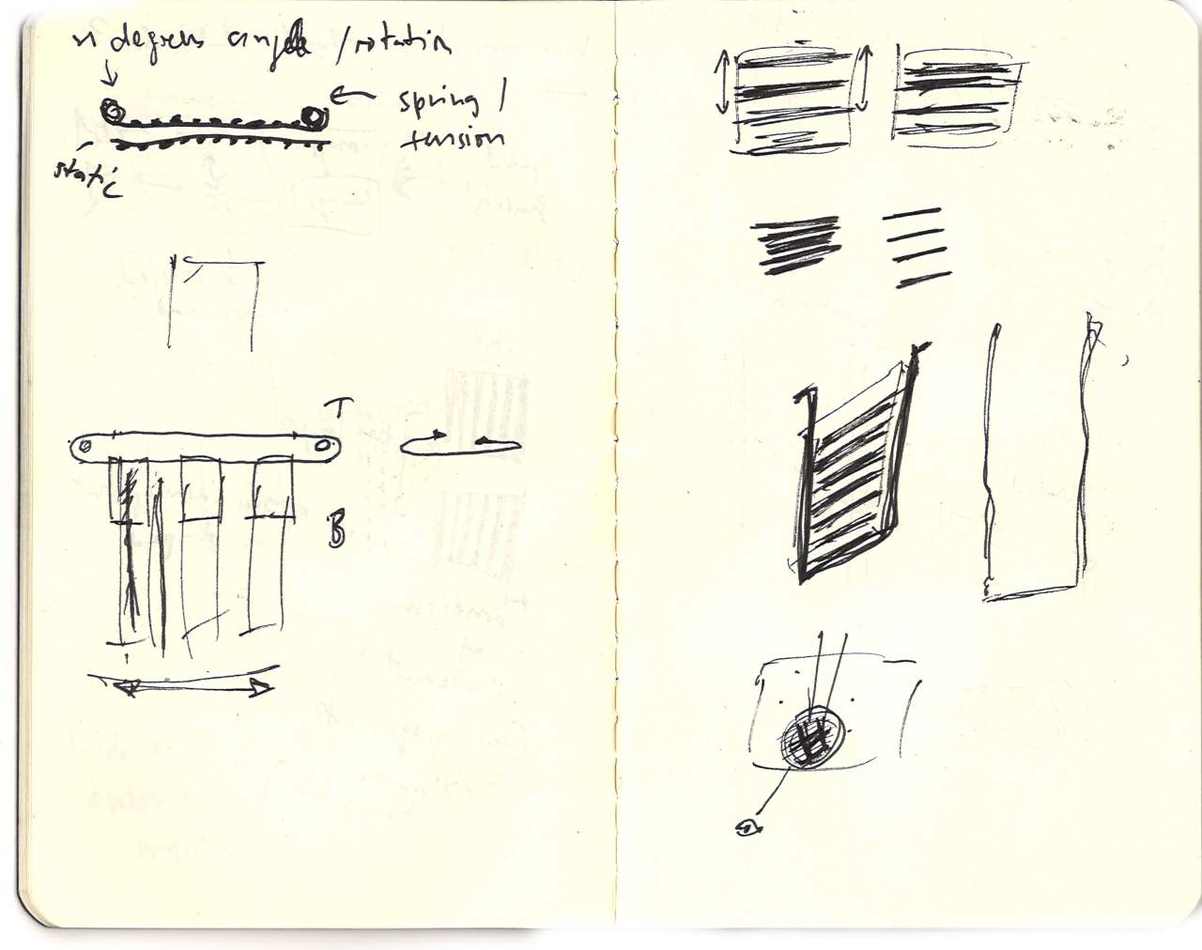 n degrees angle / rotation
spring /
tension
static
T
B